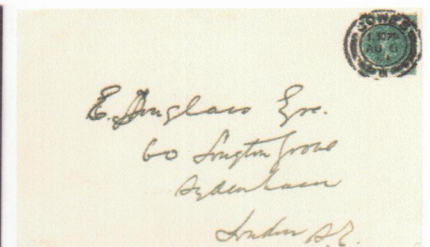 COWES
E. Douglass Esq.
60 Longton Grove
Sydenham
London S.E.